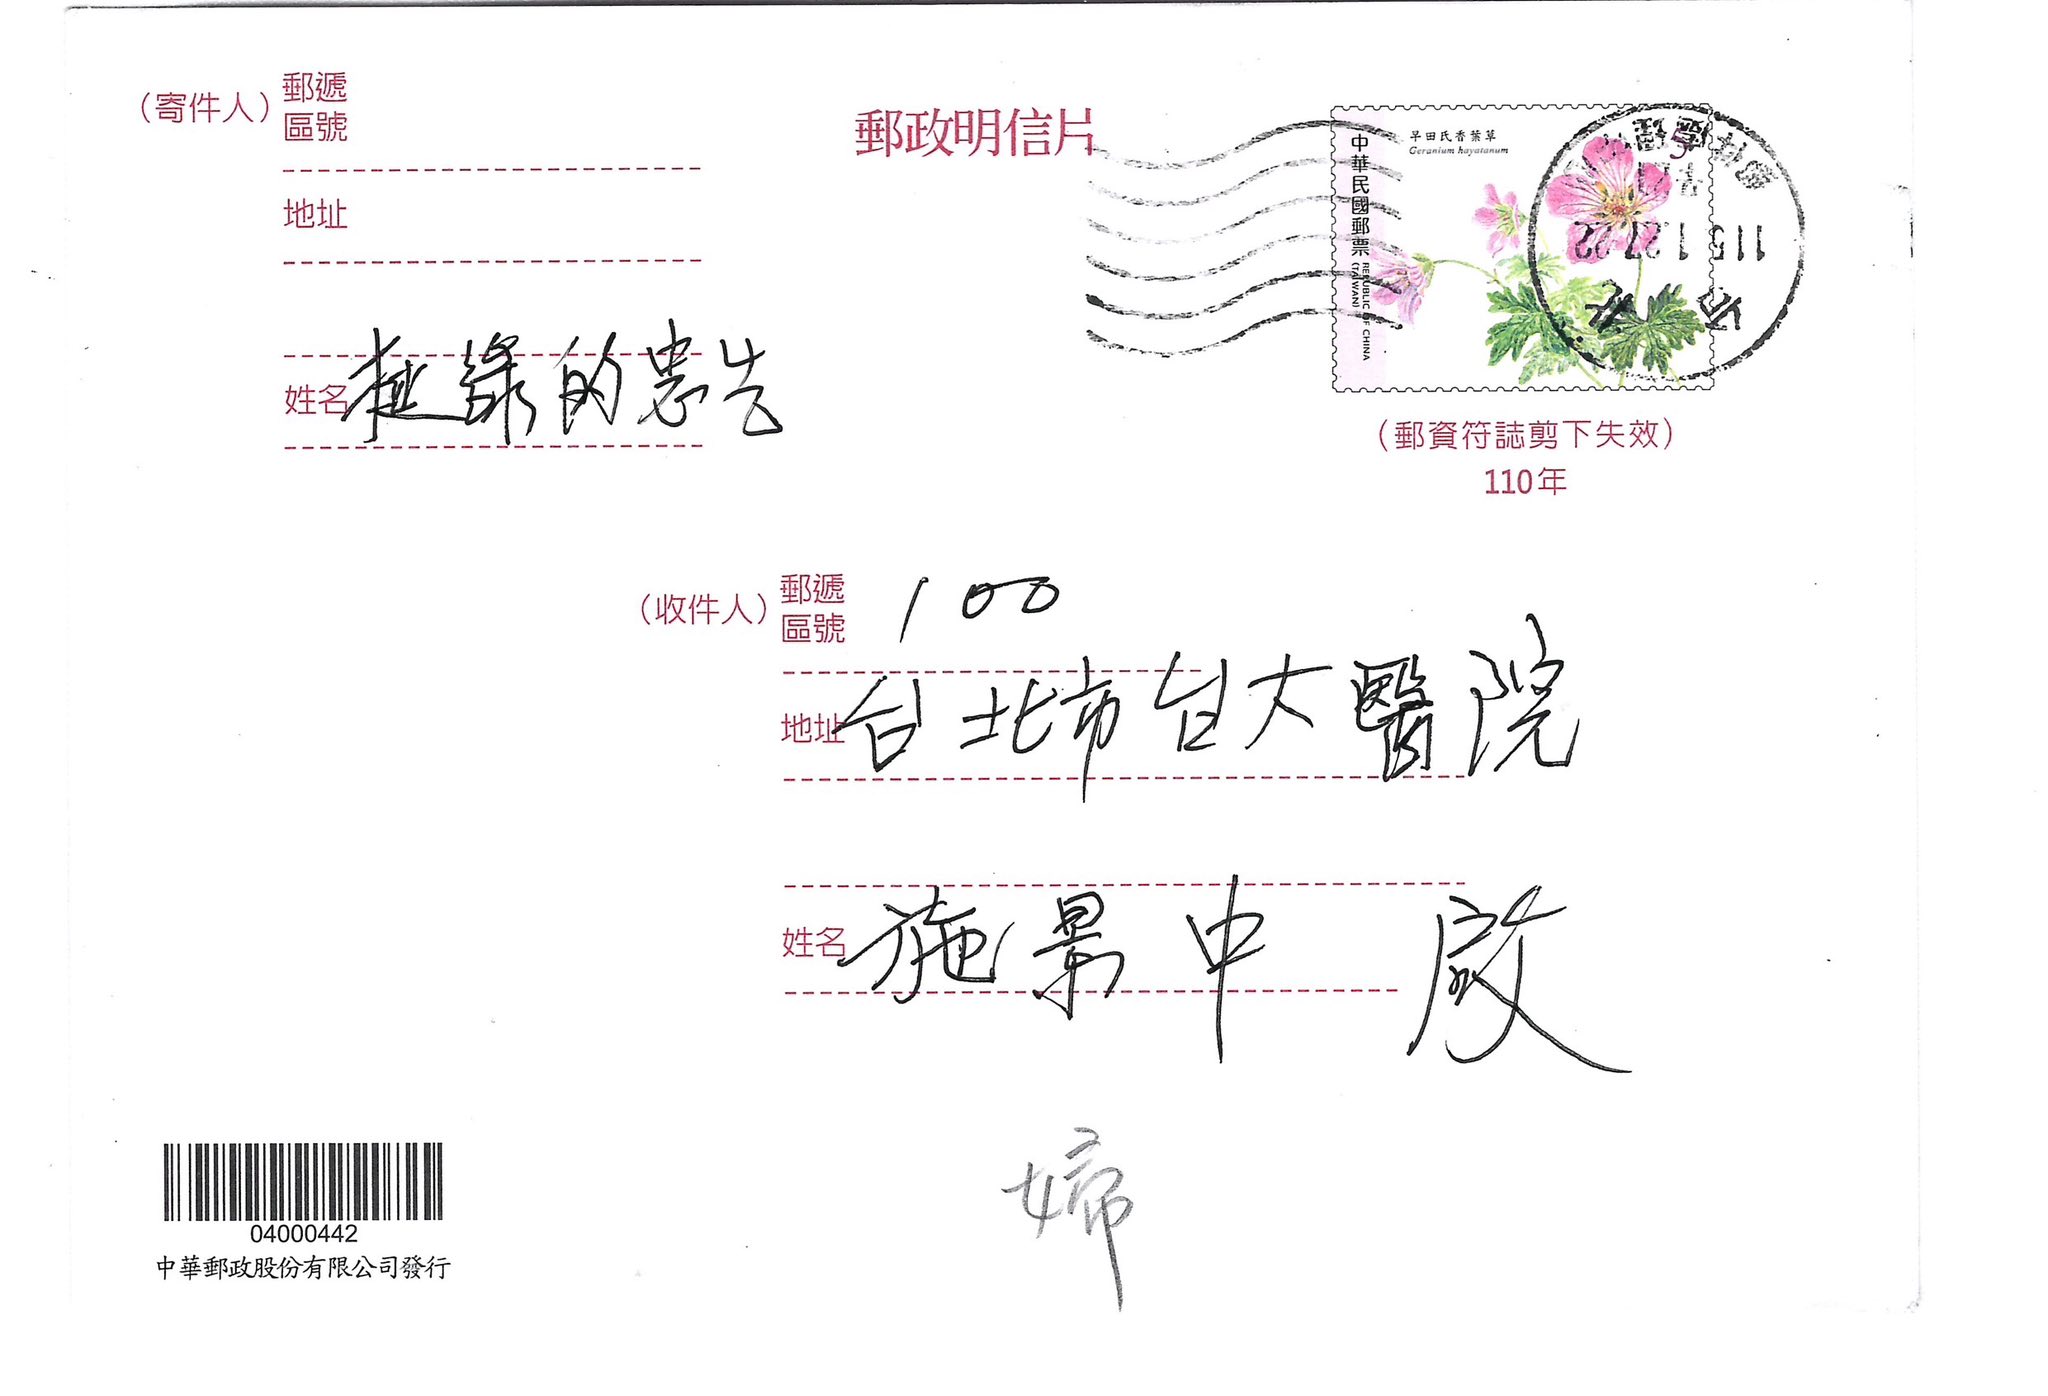 （寄件人）郵遞區號
地址
姓名 極綠的忠告
郵政明信片
早田氏香葉草
Geranium hayatanum
中華民國郵票
REPUBLIC OF CHINA (TAIWAN)
5
115.1.27.22
（郵資符誌剪下失效）
110年
（收件人）郵遞區號 100
地址 台北市台大醫院
姓名 施景中 啟
婦
04000442
中華郵政股份有限公司發行